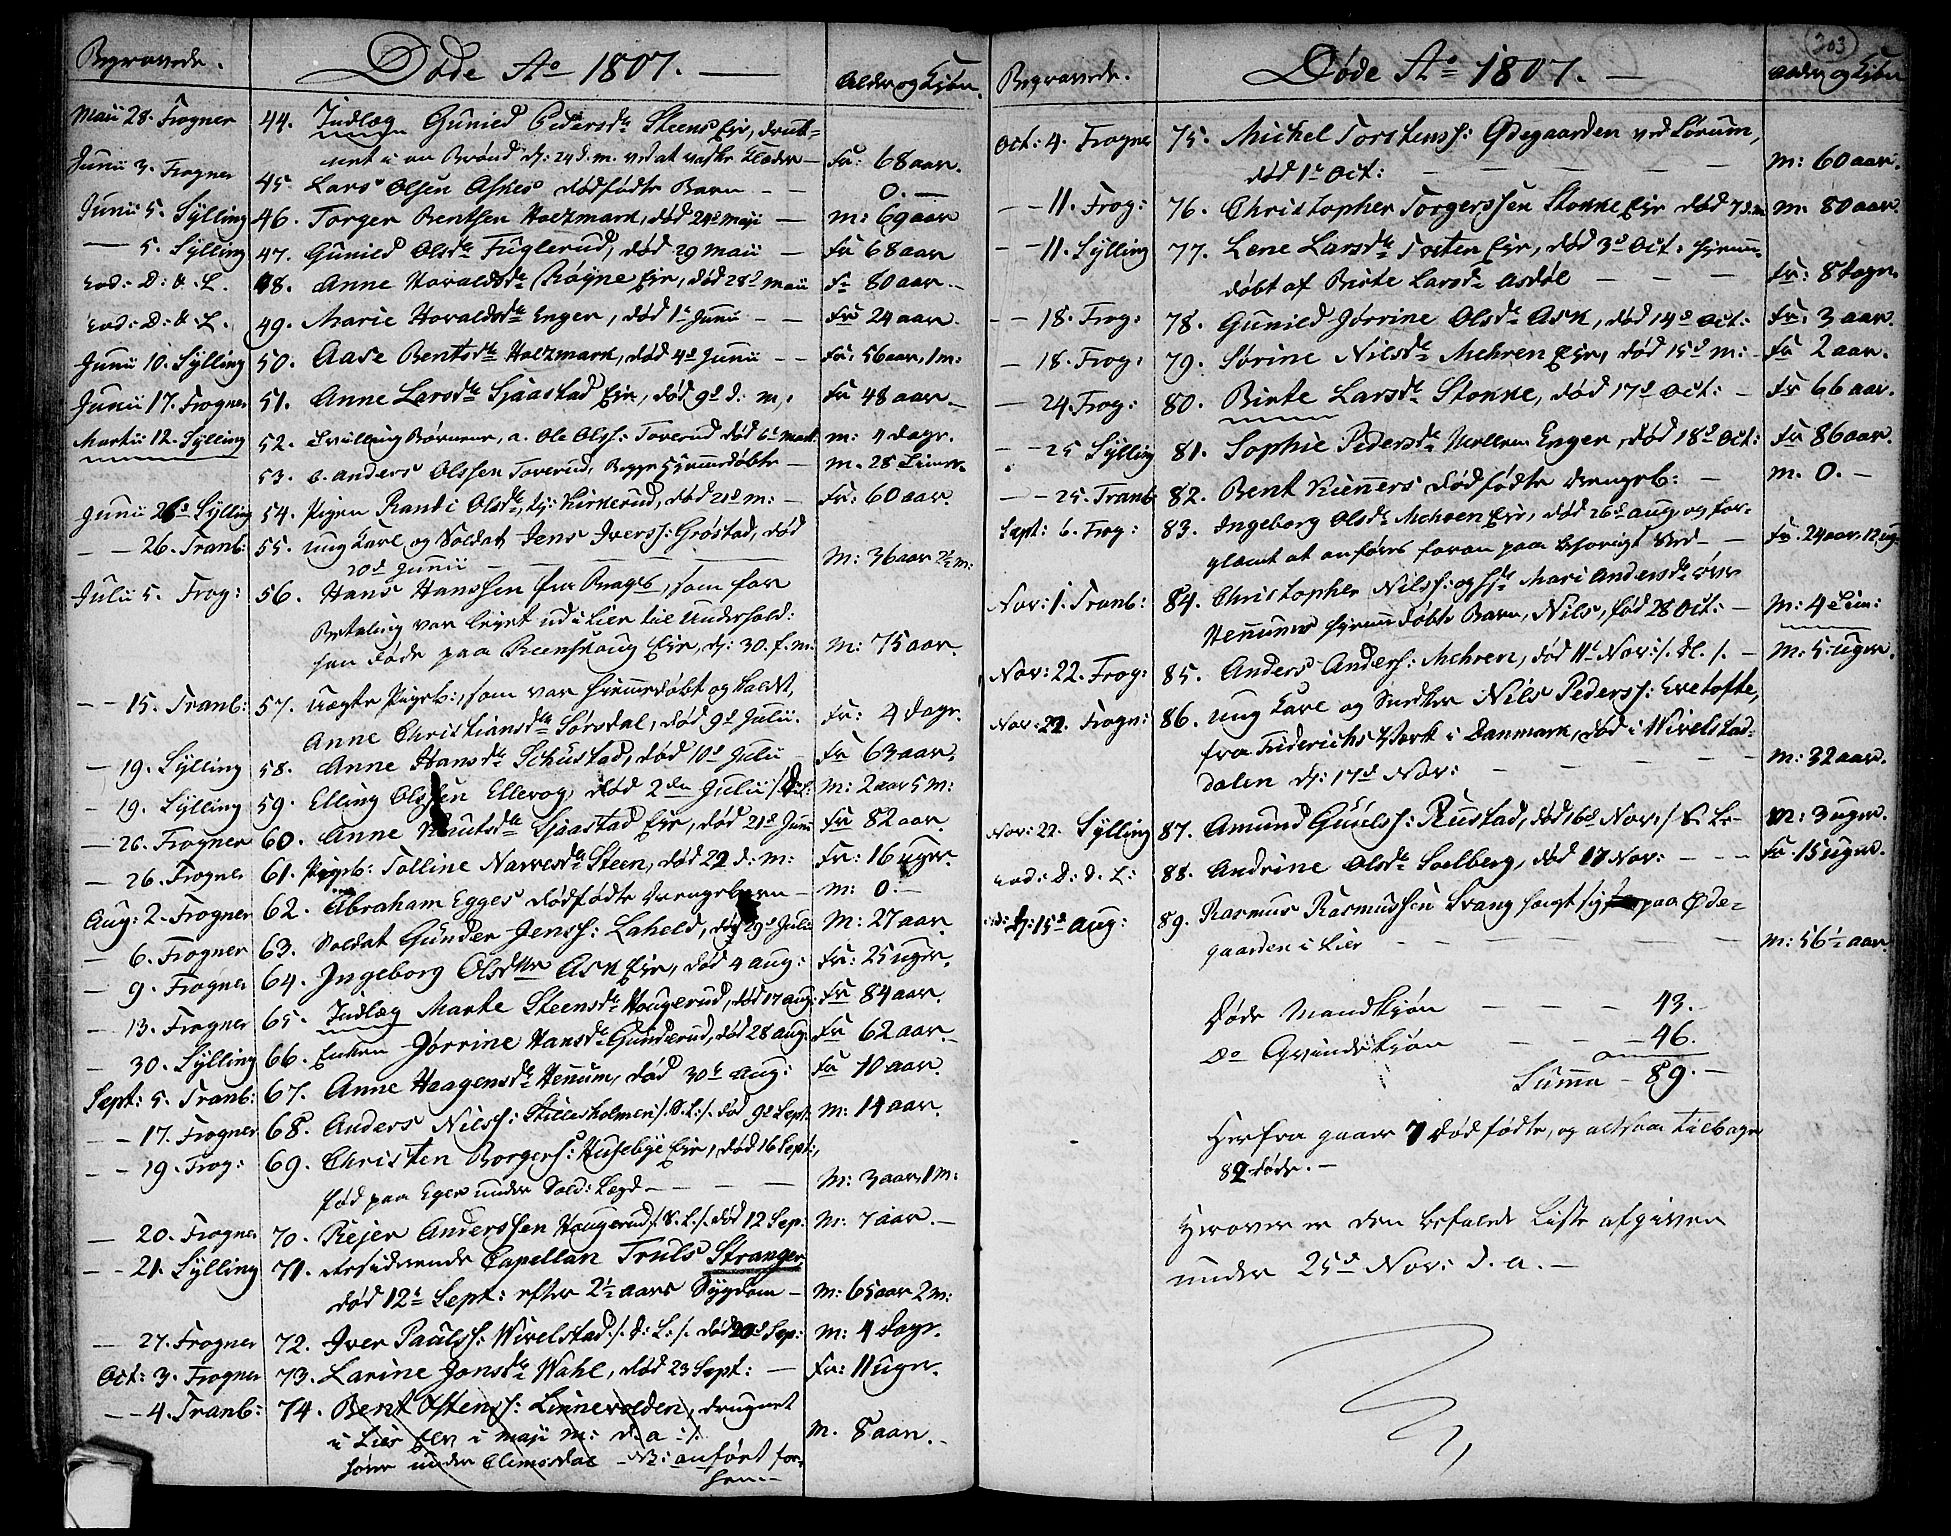 Begravede. Døde Ao 1807. Alder og Kjøn.
Maii 28. Frogner 44. Indlæg Gunild Pedersdr Steens Eje, druk-
net i en Brønd d: 24 d. m. ved at vaske Klæder — Fr: 68 aar.
Junii 3. Frogner 45. Lars Olsen Askes dødfødte Barn — 0. —
Junii 5. Sylling 46. Torger Bentsen Holtzmark, død 24d maji — m: 69 aar
— 5. Sylling 47. Gunild Olsdr Fuglerud, død 29 Maii — Fr 68 aar
eod: D: & L. 48. Anne Haraldsdr Røgne Eje, død 28d Maii Fr 80 aar. —
eod: D: & L. 49. Marie Horaldsdr Enger, død 1ste Junii — Fr: 24 aar.
Junii 10. Sylling 50. Aase Bentsdr Holtzmark, død 4d Junii — Fr: 56 aar, 1 m:
Junii 17. Frogner 51. Anne Larsdr Sjaastad Eje, død 9d d: m: Fr 48 aar. —
Martii 12. Sylling 52. Tvilling Børnene, a. Ole Olss: Toverud død 6te Mart: m: 4 dage.
53. b. Anders Olssen Toverud, begge hjemmedøbte — m. 28 Timer.
Junii 26d Sylling 54. Pigen Randi Olsdr, Kirkerud, død 21d m: — Fr: 60 aar.
— 26. Tranb: 55. Ung Karl og Soldat Jens Iverss: Grøstad, død
20d Junii — M: 36 aar 2½ m:
Julii 5. Frog: 56. Hans Hanssen fra Bragn, som for
Betaling var lejet ud i Lier til Underhold:
han døde paa Reenskoug Eje, d: 30. f. m: M: 75 aar.
— 15. Tranb: 57. Uægte Pigeb:, som var hjemmedøbt og kaldt,
Anne Christiansdr Sørsdal, død 9d Julii. Fr: 4 dage.
— 19. Sylling 58. Anne Hansdr Schustad, død 10d Julii Fr 63 aar.
— 19. Sylling 59. Elling Olssen Ellevog, død 2den Julii M: 2 aar 5 m:
— 26. Frogner 60. Anne Knutsdr Sjaastad Eje, død 21d Junii Fr 82 aar.
— 26. Frogner 61. Pigeb: Tolline Narvesdr Steen, død 22 d: m: Fr: 16 uger.
Aug: 2. Frogner 62. Abraham Egges dødfødte Drengebarn — m: 0. —
— 6. Frogner 63. Soldat Gunder Jenss: Laheld, død 29d Julii M: 27 aar.
— 9. Frogner 64. Ingeborg Olsdttr Ask Eje, død 4 Aug: Fr: 25 uger.
— 13. Frogner 65. Indlæg Marte Steensdr Hougerud, død 17 aug: Fr 84 aar.
— 30. Sylling 66. Enken Jørrine Hansdr Gunderud, død 28 aug: Fr 62 aar. —
Sept: 5. Tranb: 67. Anne Haagensdr Hennum, død 30te Aug: Fr 70 aar.
— 17. Frogner 68. Anders Nilss: Stillesholmen /. S. L: /. død 9d Sept: m: 14 aar.
— 19. Frog: 69. Christen Borgerss: Husebye Eje, død 16 Sept:,
Fød paa Eger under Sold: Lægd — M: 3 aar, 1 m:
— 20. Frogner 70. Rejer Anderssen Hougerud /. S. L. /. død 12 Sep: M: 7 aar. —
— 21. Sylling 71. Residerende Capellan Truls Stranger,
død 12te Sept: efter 2½ aars Sygdom — M: 65 aar 2 m:
— 27. Frogner 72. Iver Paulss: Wivelstad /. d: L: /. død 20d Sep: M: 4 dage.
Oct: 3. Frogner 73. Larine Jonsdr Wahl, død 23 Sept: — Fr: 11 uger.
— 4. Tranb: 74. Bent Ostenss: Linnevolden, druknet
i Lier Elv i maji m: d. a: /.
hører under Elimsdal — NB: anført for-
hen. — M. 8 aar. —
303
Begravede. Døde Ao 1807. — Alder og Kjøn
Oct: 4. Frogner 75. Michel Torstenss: Ødegaarden ved Sørum,
død 1te Oct: — M: 60 aar.
— 11. Frog: 76. Christopher Torgerssen Stokke Eje død 7 d. m M: 80 aar.
— 11. Sylling 77. Lene Larsdr Tosten Eje, død 3d Oct: hjemme-
døbt af Birte Larsdr Asdøl — Fr: 8 dage.
— 18. Frog: 78. Gunild Jørrine Olsdr Ask, død 14d Oct: Fr: 3 aar.
— 18. Frog: 79. Sørine Nilsdr Mehren Eje, død 15d m: Fr 2 aar.
— 24 Frog: 80. Birte Larsdr Stokke, død 17d Oct: — Fr 66 aar.
— 25 Sylling 81. Sophie Pedersdr Mellem Enger, død 18d Oct: Fr 86 aar.
— 25. Tranb: 82. Bent Kuners dødfødte Drengeb: — m. 0. —
Sept: 6. Frog: 83. Ingeborg Olsdr Mehren Eje, død 26d aug. og for-
glemt at anføres foran paa behørigt Sted — Fr: 24 aar, 12 ug.
Nov: 1. Tranb: 84. Christopher Nilss: og H: Mari Andersdr øvre
Hennums hjemmedøbte Barn, Nils, fød 28 Oct: — M: 4 Tim:
Nov: 22. Frog: 85. Anders Anderss: Mehren, død 11te Nov: /. M: 5 uger.
Nov: 22. Frogn: 86. Ung Karl og Snedker Nils Pederss: Evetofte,
fra Friderichs Værk i Danmark, død i Wivelstad-
dalen d: 17d Nov: — M: 32 aar.
Nov: 22. Sylling 87. Amund Gulss: Rustad, død 16d Nov: /. S. L. M: 3 uger.
eod: D: d. L: 88. Andrine Olsdr Solberg, død 17 Nov: — Fr 15 uger.
d: 15d Aug: 89. Rasmus Rasmussen Svang hængt sig paa Øde-
gaarden i Lier — M: 56½ aar.
Døde Mandkjøn — 43. —
Do Qvindekjøn — 46.
Summa — 89. —
Herfra gaaer 7 dødfødte, og altsaa tilbage
82 døde. —
Herover er den befalede Liste afgiven
under 25d Nov: d. a. —